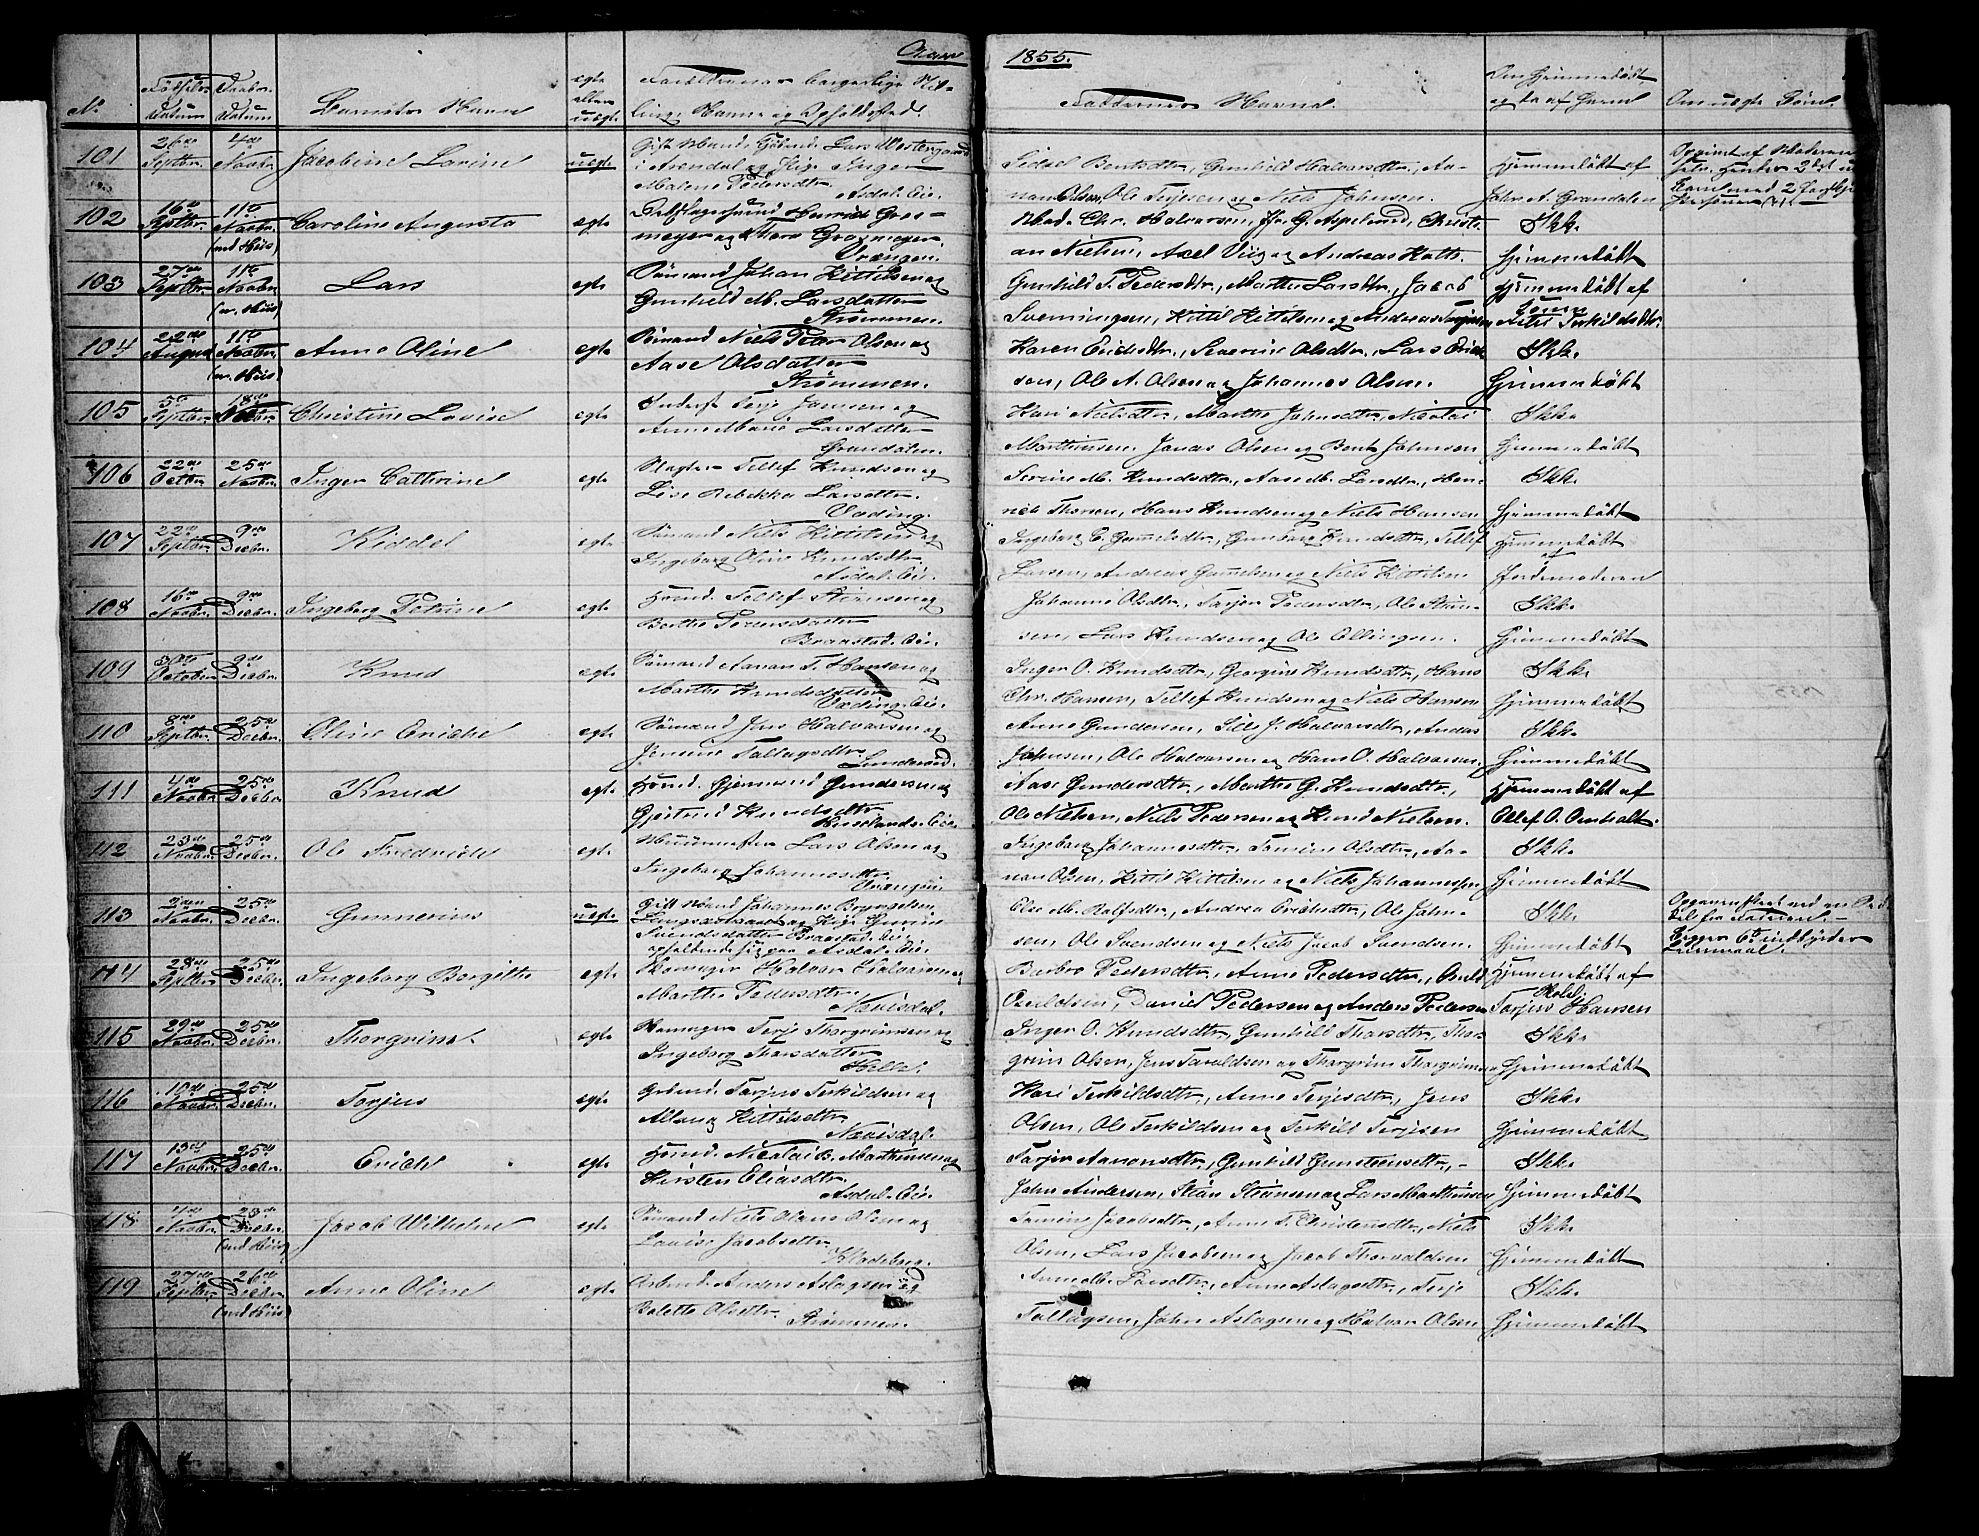 Aaret 1855.
No
Fødsels-
Datum
Daabs-
Datum
Barnets Navn
egte
eller
uegte
Forældrenes borgerlige Stil-
ling, Navne og Opholdssted.
Faddernes Navne.
Om Hjemmedøbt
og da af hvem
Om uægte Børn
101
26de
Septbr.
4de
Novbr.
Jacobine Lovine
uegte
i Arendal og Pige Inger
Malene Pedersdtr.
Asdal. Eie.
Sidsel Bentsdtr., Gunhild Halvorsdtr., Aa-
non Olsen, Ole Terjesen og Niels Johnsen.
Hjemmedøbt af
John A. Grandalen
102
16de
Septbr.
11te
Novbr.
(med Huus)
Caroline Augusta
egte
meyer og
Vrængen.
Mad. Chr. Halvorsen, Fr. G. Aspelund, Christi-
an Nielsen, Axel Viig og Andreas Hoth.
Ikke
Hjemmedøbt
103
27de
Septbr.
11te
Novbr.
(m. Huus)
Lars
egte
Sømand Johan Kittelsen og
Gunhild M. Larsdatter
Strømmen.
Gunhild T. Pedersdtr., Marthe Larsdtr., Jacob
Svenningsen, Kittil Kittelsen og Andreas Terjesen
Hjemmedøbt af
Terkildsdtr.
104
22de
August
11te
Novbr.
(m. Huus)
Anne Oline
egte
Sømand Niels Peter Olsen og
Aase Olsdatter
Strømmen.
Karen Erichsdtr., Severine Olsdtr., Lars Erich-
sen, Ole A. Olsen og Johannes Olsen.
Ikke
Hjemmedøbt
105
5te
Septbr.
18de
Novbr.
Christine Lovise
egte
Inderst Terje Jonsen og
Anne Marie Larsdatter
Grandalen.
Kari Nielsdtr., Marthe Johnsdtr., Nicolai
Marthinsen, Jonas Olsen og Bent Johnsen
Ikke
Hjemmedøbt
106
22de
Octobr.
25de
Novbr.
Inger Cathrine
egte
Slagter Tellef Knudsen og
Lise Rebekka Larsdtr.
Vrding.
Serine M. Knudsdtr., Aase M. Larsdtr., Hen-
rich Thorsen, Hans Knudsen og Niels Hansen
Ikke
Hjemmedøbt
107
22de
Septbr.
9de
Decbr.
Kiddel
egte
Sømand Niels Kittilsen og
Ingeborg Oline Knudsdtr.
Asdal. Eie.
Ingeborg E. Gunnelsdtr., Gunborg Knudsdtr., Tellef
Larsen, Andreas Gunnelsen og Niels Kittilsen
Hjemmedøbt
af
Jordemoderen
108
16de
Novbr.
9de
Decbr.
Ingeborg Petrine
egte
Huusmd. Tellef Steensen og
Berthe Terjensdatter
Braastad. Eie.
Johanne Olsdtr., Torjer Pedersdtr., Ole Steen-
sen, Lars Knudsen og Ole Ellingsen.
Ikke
Hjemmedøbt
109
30te
October
9de
Decbr.
Knud
egte
Sømand Aanon T. Hansen og
Marthe Knudsdatter
Vrding. Eie.
Inger O. Knudsdtr., Georgine Knudsdtr., Hans
Chr. Hansen, Tellef Knudsen og Niels Hansen
Ikke
Hjemmedøbt
110
8de
Septbr.
25de
Decbr.
Oline Eriche
egte
Sømand Jens Halvorsen og
Jensine Tallagsdtr.
Lunderød.
Anne Gundersen, Sille J. Halvorsdtr., Anders
Johnsen, Ole Halvorsen og Hans O. Halvorsen.
Ikke
Hjemmedøbt
111
4de
Novbr.
25de
Decbr.
Knud
egte
Huusmd. Gjermund Gundersen og
Gjertrud Knudsdtr.
Aase Gundersdtr., Marthe G. Knudsdtr.,
Ole Nielsen, Niels Pedersen og Knud Nielsen.
Hjemmedøbt af
Ollef O. Omholt.
112
23de
Novbr.
25de
Decbr.
Ole Fredrich
egte
Lars Olsen og
Ingeborg Johannesdtr.
Vrængen
Ingeborg Johannesdtr., Tomine Olsdtr., Aa-
non Olsen, Kittil Kittilsen og Niels Johannesen
Ikke
Hjemmedøbt
113
2den
Novbr.
25de
Decbr.
Gunnerius
uegte
Gift Mand Johannes Brynjelsen
Svendsdatter Braastad. Eie.
opholdende sig paa Asdal. Eie.
Else M. Rolfsdtr., Andrea Erichsdtr., Ole John-
sen, Ole Svendsen og Niels Jacob Svendsen.
Ikke
Hjemmedøbt
114
28de
Septbr.
25de
Decbr.
Ingeborg Borgitte
egte
Skomager Halvor Halvorsen og
Marthe Pedersdtr.
Næsdal.
Barbro Pedersdtr., Anne Pedersdtr.,
Osvaldsen, Daniel Pedersen og Anders Pedersen
Hjemmedøbt af
Torjus Hansen
115
29de
Novbr.
25de
Decbr.
Thorgrine
egte
Skomager Terje Thorgrimsen og
Ingeborg Thorsdatter
Helle.
Inger O. Knudsdtr., Gunhild Thorsdtr., Thor-
grim Olsen, Jens Taraldsen og Thorgrim Thorgrimsen
Ikke
Hjemmedøbt
116
10de
Novbr.
25de
Decbr.
Torjus
egte
Grbmd. Torjus Terkildsen og
Allong Kittilsdtr.
Næsdal.
Kari Terkildsdtr., Anne Terjesdtr., Jens
Olsen, Ole Terkildsen og Terkild Terjesen
Ikke
Hjemmedøbt
117
13de
Novbr.
25de
Decbr.
Erich
egte
Huusmd. Nicolai B. Marthinsen og
Kirsten Eliasdtr.
Asdal. Eie.
Torjer Aanonsdtr., Gunhild Gunsteensdtr.,
John Andersen, Stian Steansen og Lars Marthinsen
Ikke
Hjemmedøbt
118
4de
Novbr.
23de
Decbr.
(med Huus)
Jacob Wilhelm
egte
Sømand Niels Olaus Olsen og
Lovise Jacobsdtr.
Kladeberg.
Tomine Jacobsdtr., Anne T. Christensdtr., Niels
Olsen, Lars Jacobsen og Jacob Thorvaldsen
Ikke
Hjemmedøbt
119
27de
Septbr.
26de
Decbr.
(med Huus)
Anne Oline
egte
Arbmd. Anders Aslagsen og
Bolette Olsdtr.
Strømmen.
Anne M. Larsdtr., Anne Aslagsdtr., Terje
Tallagsen, John Aslagsen og Halvor Olsen
Ikke
Hjemmedøbt